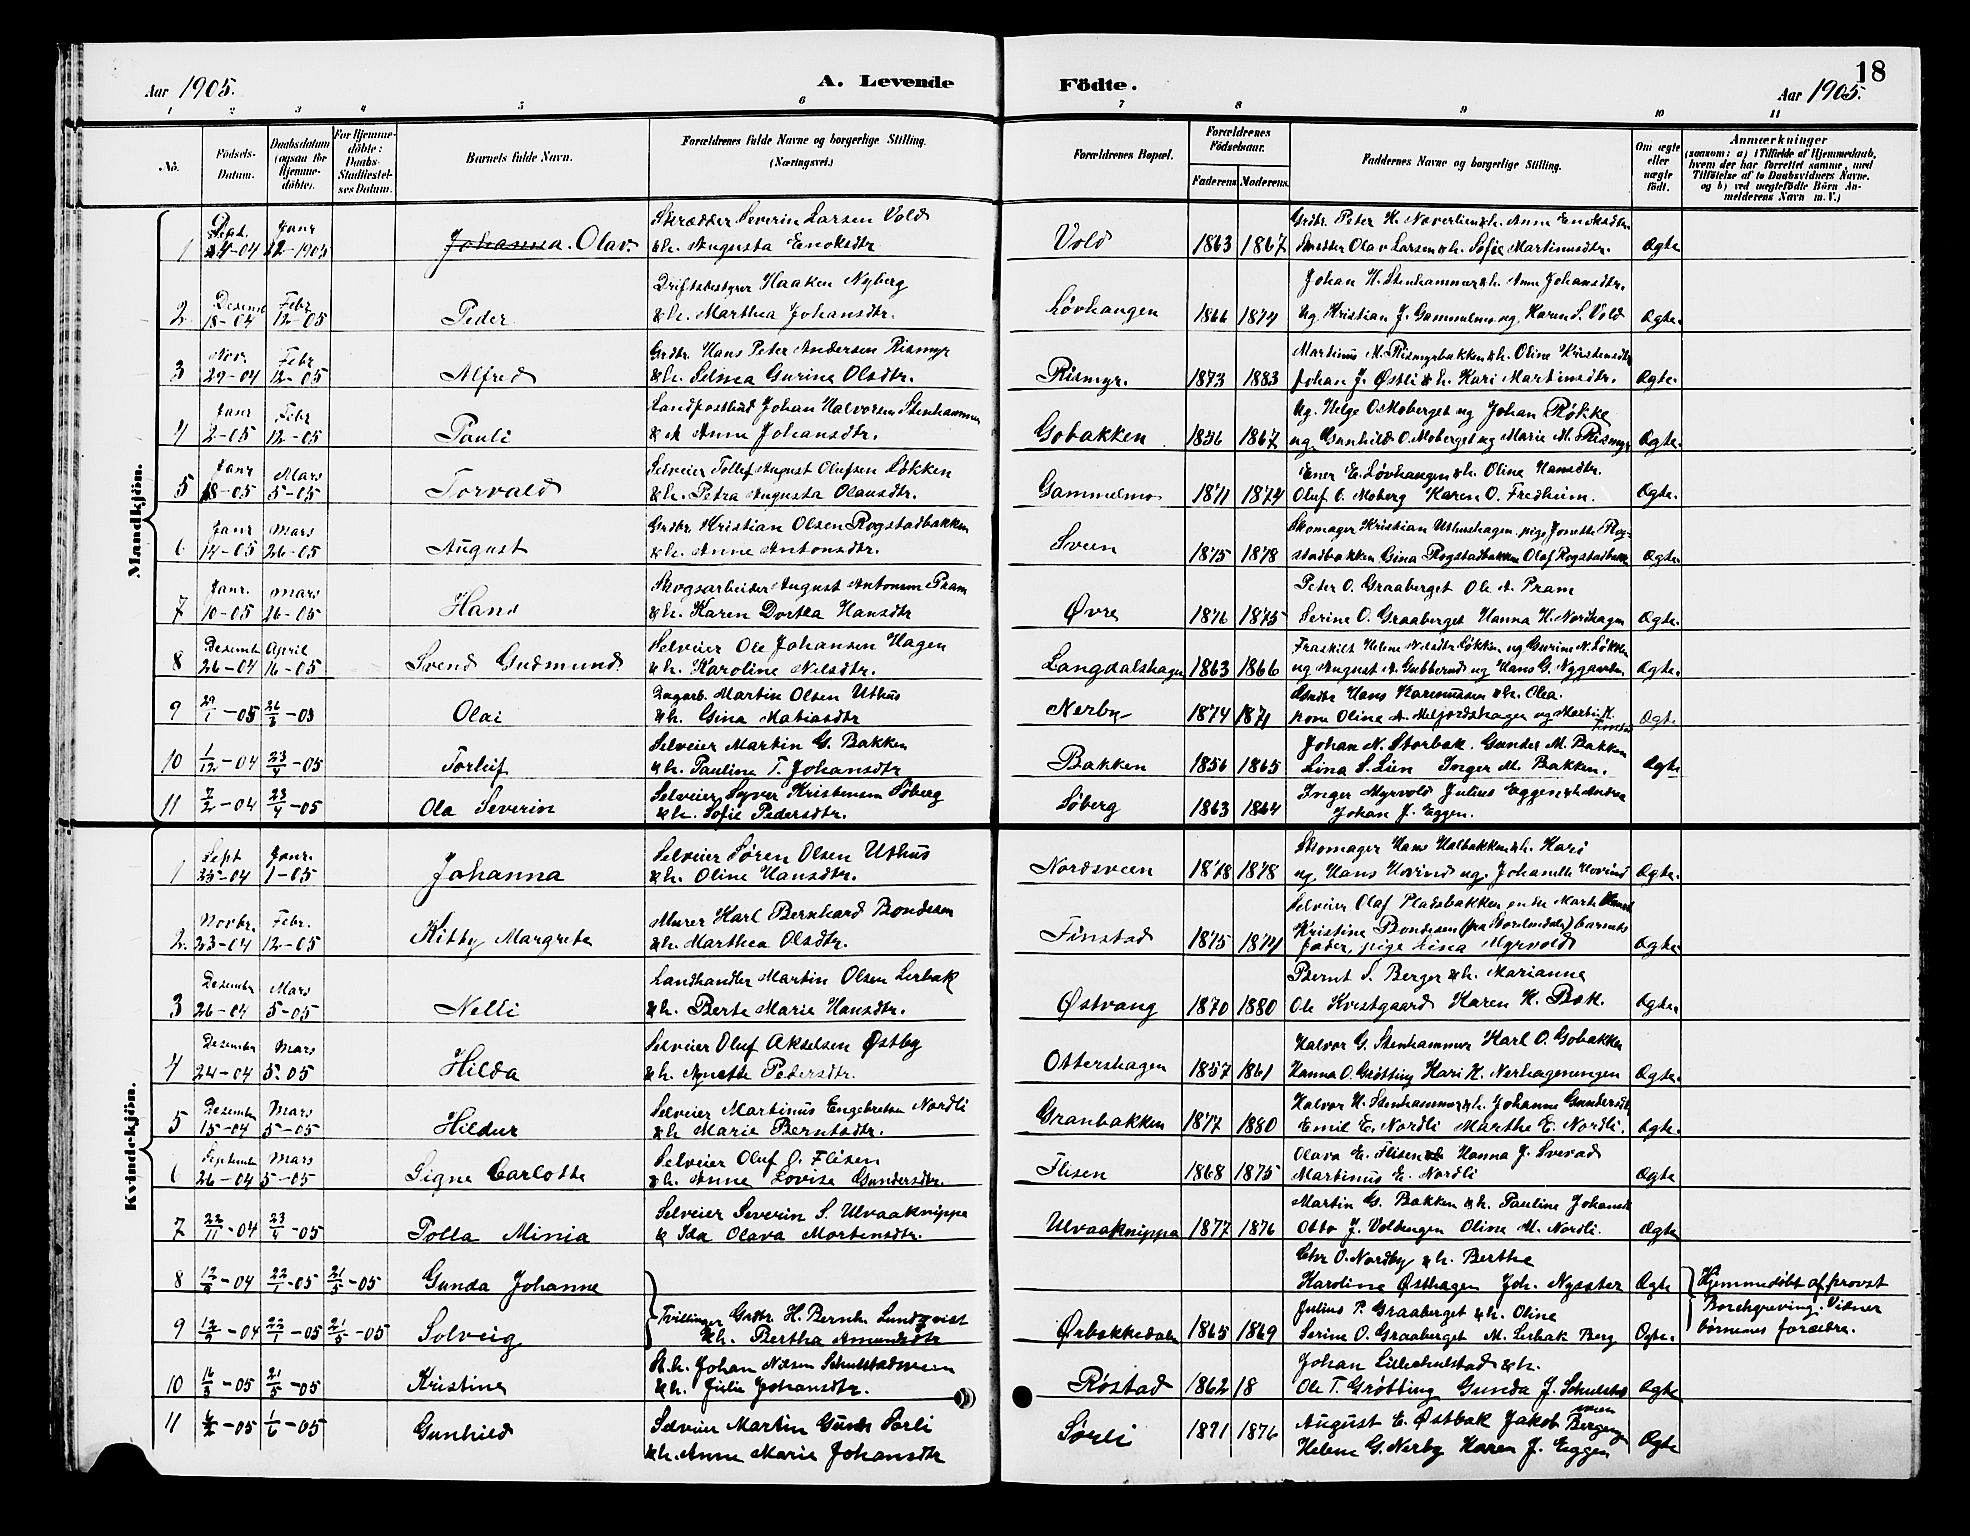 18
Aar 1905.
A. Levende Födte.
Aar 1905.
1 2 3 4 5 6 7 8 9 10 11
No.
Födsels-Datum.
Daabsdatum (ogsaa for Hjemme-döbte).
For Hjemme-döbte: Daabs-Stadfæstel-ses Datum.
Barnets fulde Navn.
Forældrenes fulde Navne og borgerlige Stilling. (Næringsvei.)
Forældrenes Bopæl.
Forældrenes Födselsaar.
Faderens. Moderens.
Faddernes Navne og borgerlige Stilling.
Om ægte eller uægte födt.
Anmærkninger
(saasom: a) i Tilfælde af Hjemmedaab, hvem der har forrettet samme, med Tilföielse af to Daabsvidners Navne, og b) ved uægtefödte Börn An-melderens Navn m. V.)
Mandkjön.
1 Sept. 24-04 Janr 22-1905 Johanna. Olav. Skrædder Severin Larsen Vold
&h. Augusta Enoksdtr Vold 1863 1867 Grdbr. Peter H. Naverlien &h. Anne Enoksdtr.
Olav Larsen &h. Sofie Martinusdtr. Ægte
2 Desemb 18-04 Febr 12-05 Peder Driftsbestyrer Haaken Nyberg
&h. Marthea Johansdtr. Løvhaugen 1866 1874 Johan H. Stenhammer &h. Anne Johansdtr.
Ug. Kristian J. Gammelmo ug. Karen S. Vold Ægte.
3 Nov. 29-04 Febr 12-05 Alfred Grdbr. Hans Peter Andersen Rismyr
&h. Selma Gurine Olsdtr. Rismyr. 1873 1883 Martinus M. Rismyrbakken &h. Oline Kristensdtr
Johan J. Østli &h. Kari Martinsdtr. Ægte.
4 Janr 2-05 Febr 12-05 Pauli Landpostbud Johan Halvorsen Stenhammer
& h Anne Johansdtr. Gobakken 1856 1867 Ug. Helge O. Moberget ug Johan Røkke
ug. Gunhild O. Moberget ug Marie M. Rismyr Ægte.
5 Janr 18-05 Mars 5-05 Torvald Selveier Tollef August Olufsen Løkken
&h. Petra Augusta Olausdtr. Gammelmo 1871 1874 Ener E. Løvhaugen &h. Oline Hansdtr.
Oluf O. Moberg Karen O. Fredheim. Ægte.
6 Janr 14-05 Mars 26-05 August Grdbr. Kristian Olsen Rogstadbakken
&h. Anne Antonsdtr. Sveen 1875 1878 Skomager Kristian Uthushagen, pige Jonette Rog-
stadbakken Gina Rogstadbakken Olaf Rogstadbakk Ægte.
7 Janr. 10-05 Mars 26-05 Hans Skogsarbeider August Antonsen Pram
&h. Karen Dortea Hansdtr Øvre 1876 1875 Peter O. Graaberget Ole A. Pram
Serine O. Graaberget Hanna H. Nordhagen Ægte.
8 Desemb 26-04 April 16-05 Svend Gudmund Selveier Ole Johansen Hagen
&h. Karoline Nilsdtr. Langdalshagen 1863 1866 Fraskilt Helene Nilsdtr. Løkken, ug Gurine N. Løkken
ug August A. Gubberud ug Hans G. Nygaarden Ægte.
9 29/1-05 26/3-05 Olai Dagarb. Martin Olsen Uthus
&h. Gina Matiasdtr Nerby 1874 1871 Hans Rasmussen &h. Olea.
kone Oline A. Meljordshagen og Martin H. Finstad Ægt.
10 1/12-04 23/4-05 Torleif Selveier Martin G. Bakken
&h. Pauline T. Johansdtr Bakken 1856 1865 Johan N. Storbak. Gunder M. Bakken
Lina S. Lien Inger M. Bakken. Ægte
11 7/2-04 23/4-05 Ola Severin Selveier Syver Kristensen Søberg
&h. Sofie Pedersdtr. Søberg 1863 1864 Inger Myrvold Julius Eggen &h Andrea
Johan J. Eggen.
Kvindekjön.
1 Sept 25-04 Janr. 1-05 Johanna Selveier Søren Olsen Uthus
&h. Oline Hansdtr. Nordsveen 1878 1878 Skomager Hans Halbakken &h. Kari
ug. Hans Hovind ug. Johanette Hovind Ægte.
2. Novbr. 23-04 Febr. 12-05 Kitty Margrete Murer Karl Bernhard Bondesen
&h. Marthea Olsdtr. Finstad 1875 1874 Selveier Olaf Pladsbakken enke Marte
Kristine Bondesen (fra Storelvedalen) barnets
fader, pige Lina Myrvold Ægte
3 Desember 26-04 Mars 5-05 Nelli Landhandler Martin Olsen Lerbak
&h. Berte Marie Hansdtr. Østvang 1870 1880 Bernt S. Berger &h. Marianne
Ole Kvistgaard Karen K. Bak. Ægte.
4 Desember 24-04 Mars 5.05 Hilda Selveier Oluf Akselsen Østby
&h. Agnethe Pedersdtr. Ottershagen 1857 1861 Halvor G. Stenhammer Karl O. Gobakken
Hanna O. Grøtting Kari K. Nerhagenengen Ægte.
5 Desember 15-04 Mars 5-05 Hildur Selveier Martinus Engebretsen Nordli
&h Marie Berntsdtr. Granbakken 1877 1880 Halvor H. Stenhammer &h. Johanne Gundersdt
Emil E. Nordli Marthe E. Nordli. Ægte.
6 September 26-04 Mars 5-05 Signe Carlotte Selveier Oluf O. Flisen
&h. Anne Lovise Gundersdtr. Flisen 1868 1875 Olava E. Flisen Hanna J. Sverad
Martinus E. Nordli Ægte
7 22/11-04 23/4-05 Polla Minia Selveier Severin S. Ulvaaknippa
& Ida Olava Mortensdtr. Ulvaaknippa 1877 1876 Martin G. Bakken &h. Pauline Johansdt
Otto J. Voldengen Oline M. Nordli. Ægte
8 12/9-04 22/1-05 21/5-05 Gunda Johanne Chr. O. Nordby &h. Berthe
Karoline Østhagen Joh. Nysæter Ægte Hjemmedøbt af provst
9 12/9-04 22/1-05 21/5-05 Solveig Tvillinger Grdbr. H. Bernh. Lundqvist
&h. Bertha Amundsdtr Ørbakkedalen 1865 1869 Julius P. Graaberget &h. Oline
Serine O. Graaberget M. Lerbak Berg Ægte. Borchgreving. Vidner
børnenes forældre.
10 16/3-05 21/5-05 Kristine Johan Nilsen Schulstadsveen
&h. Julie Johansdtr. Røstad 1862 18 Johan Lilleschulstad &h.
Ole T. Grøtting Gunda J. Schulstadsveen Ægte
11 -05 1/6-05 Gunhild Selveier Martin Sørli
&h. Anne Marie Johansdtr Sørli 1871 1876 August E. Østbak Jakob Bergengen
Helene G. Nerby Karen J. Eggen Ægte